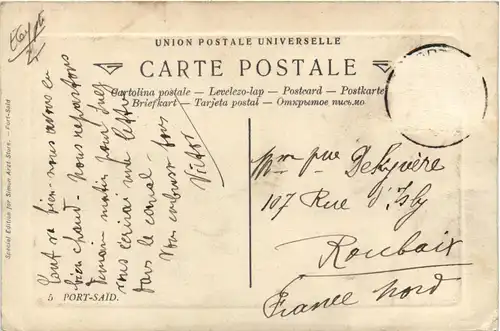 Egypte
UNION POSTALE UNIVERSELLE
CARTE POSTALE
Cartolina postale — Levelezo-lap — Postcard — Postkarte
Briefkart — Tarjeta postal — Открытое письмо
Special Edition for Simon Arzt Store. - Port-Saïd
Tout va bien - nous avons eu
bien chaud - Nous repartons
demain matin pour Suez
vous écrirai une lettre
dans le canal -
Vous embrasse tous
Victor
Mme De
107 Rue d'Isly
Roubaix
France Nord
5 PORT-SAÏD.